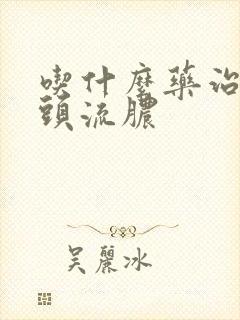 喫什麼藥治
頭流膿
吳麗冰